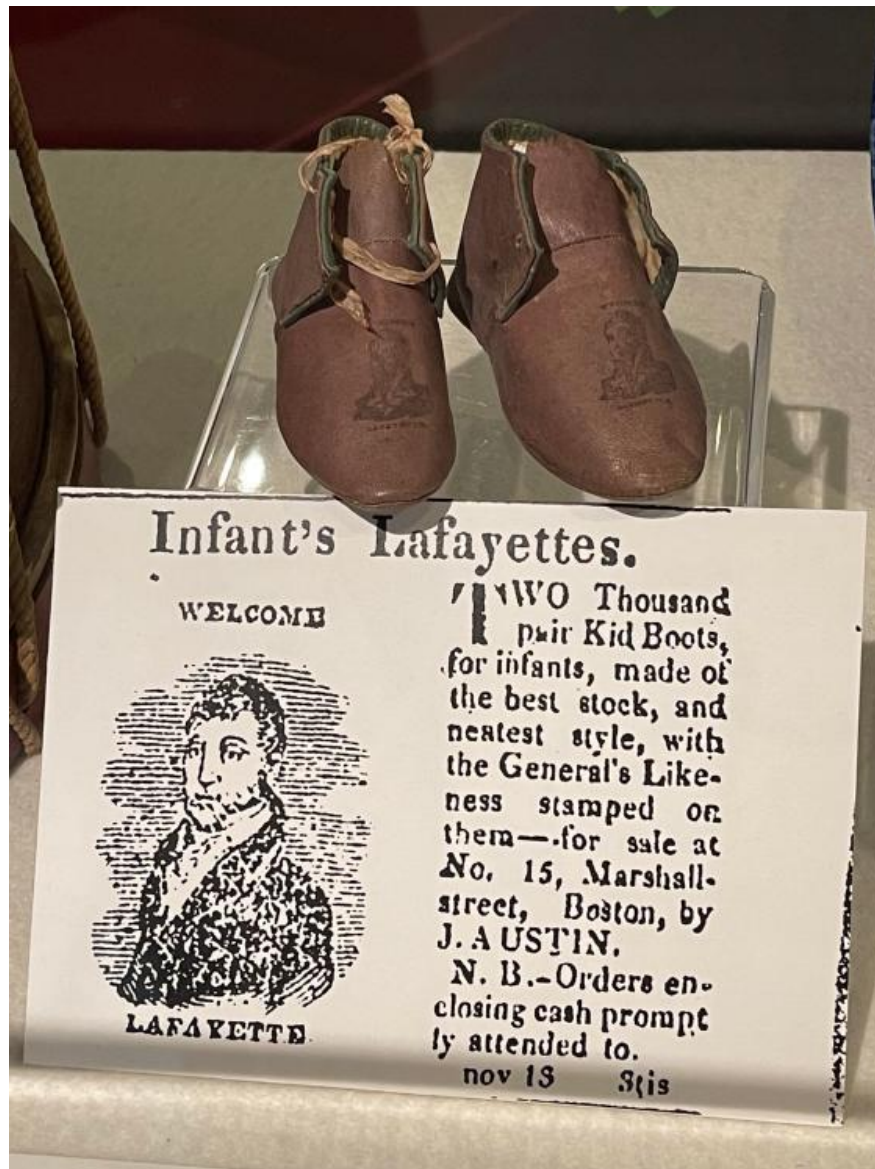 Infant's Lafayettes.
WELCOME
LAFAYETTE
TWO Thousand
pair Kid Boots,
for infants, made of
the best stock, and
neatest style, with
the General's Like-
ness stamped on
them—for sale at
No. 15, Marshall-
street, Boston, by
J. AUSTIN.
N. B.-Orders en-
closing cash prompt
ly attended to.
nov 18